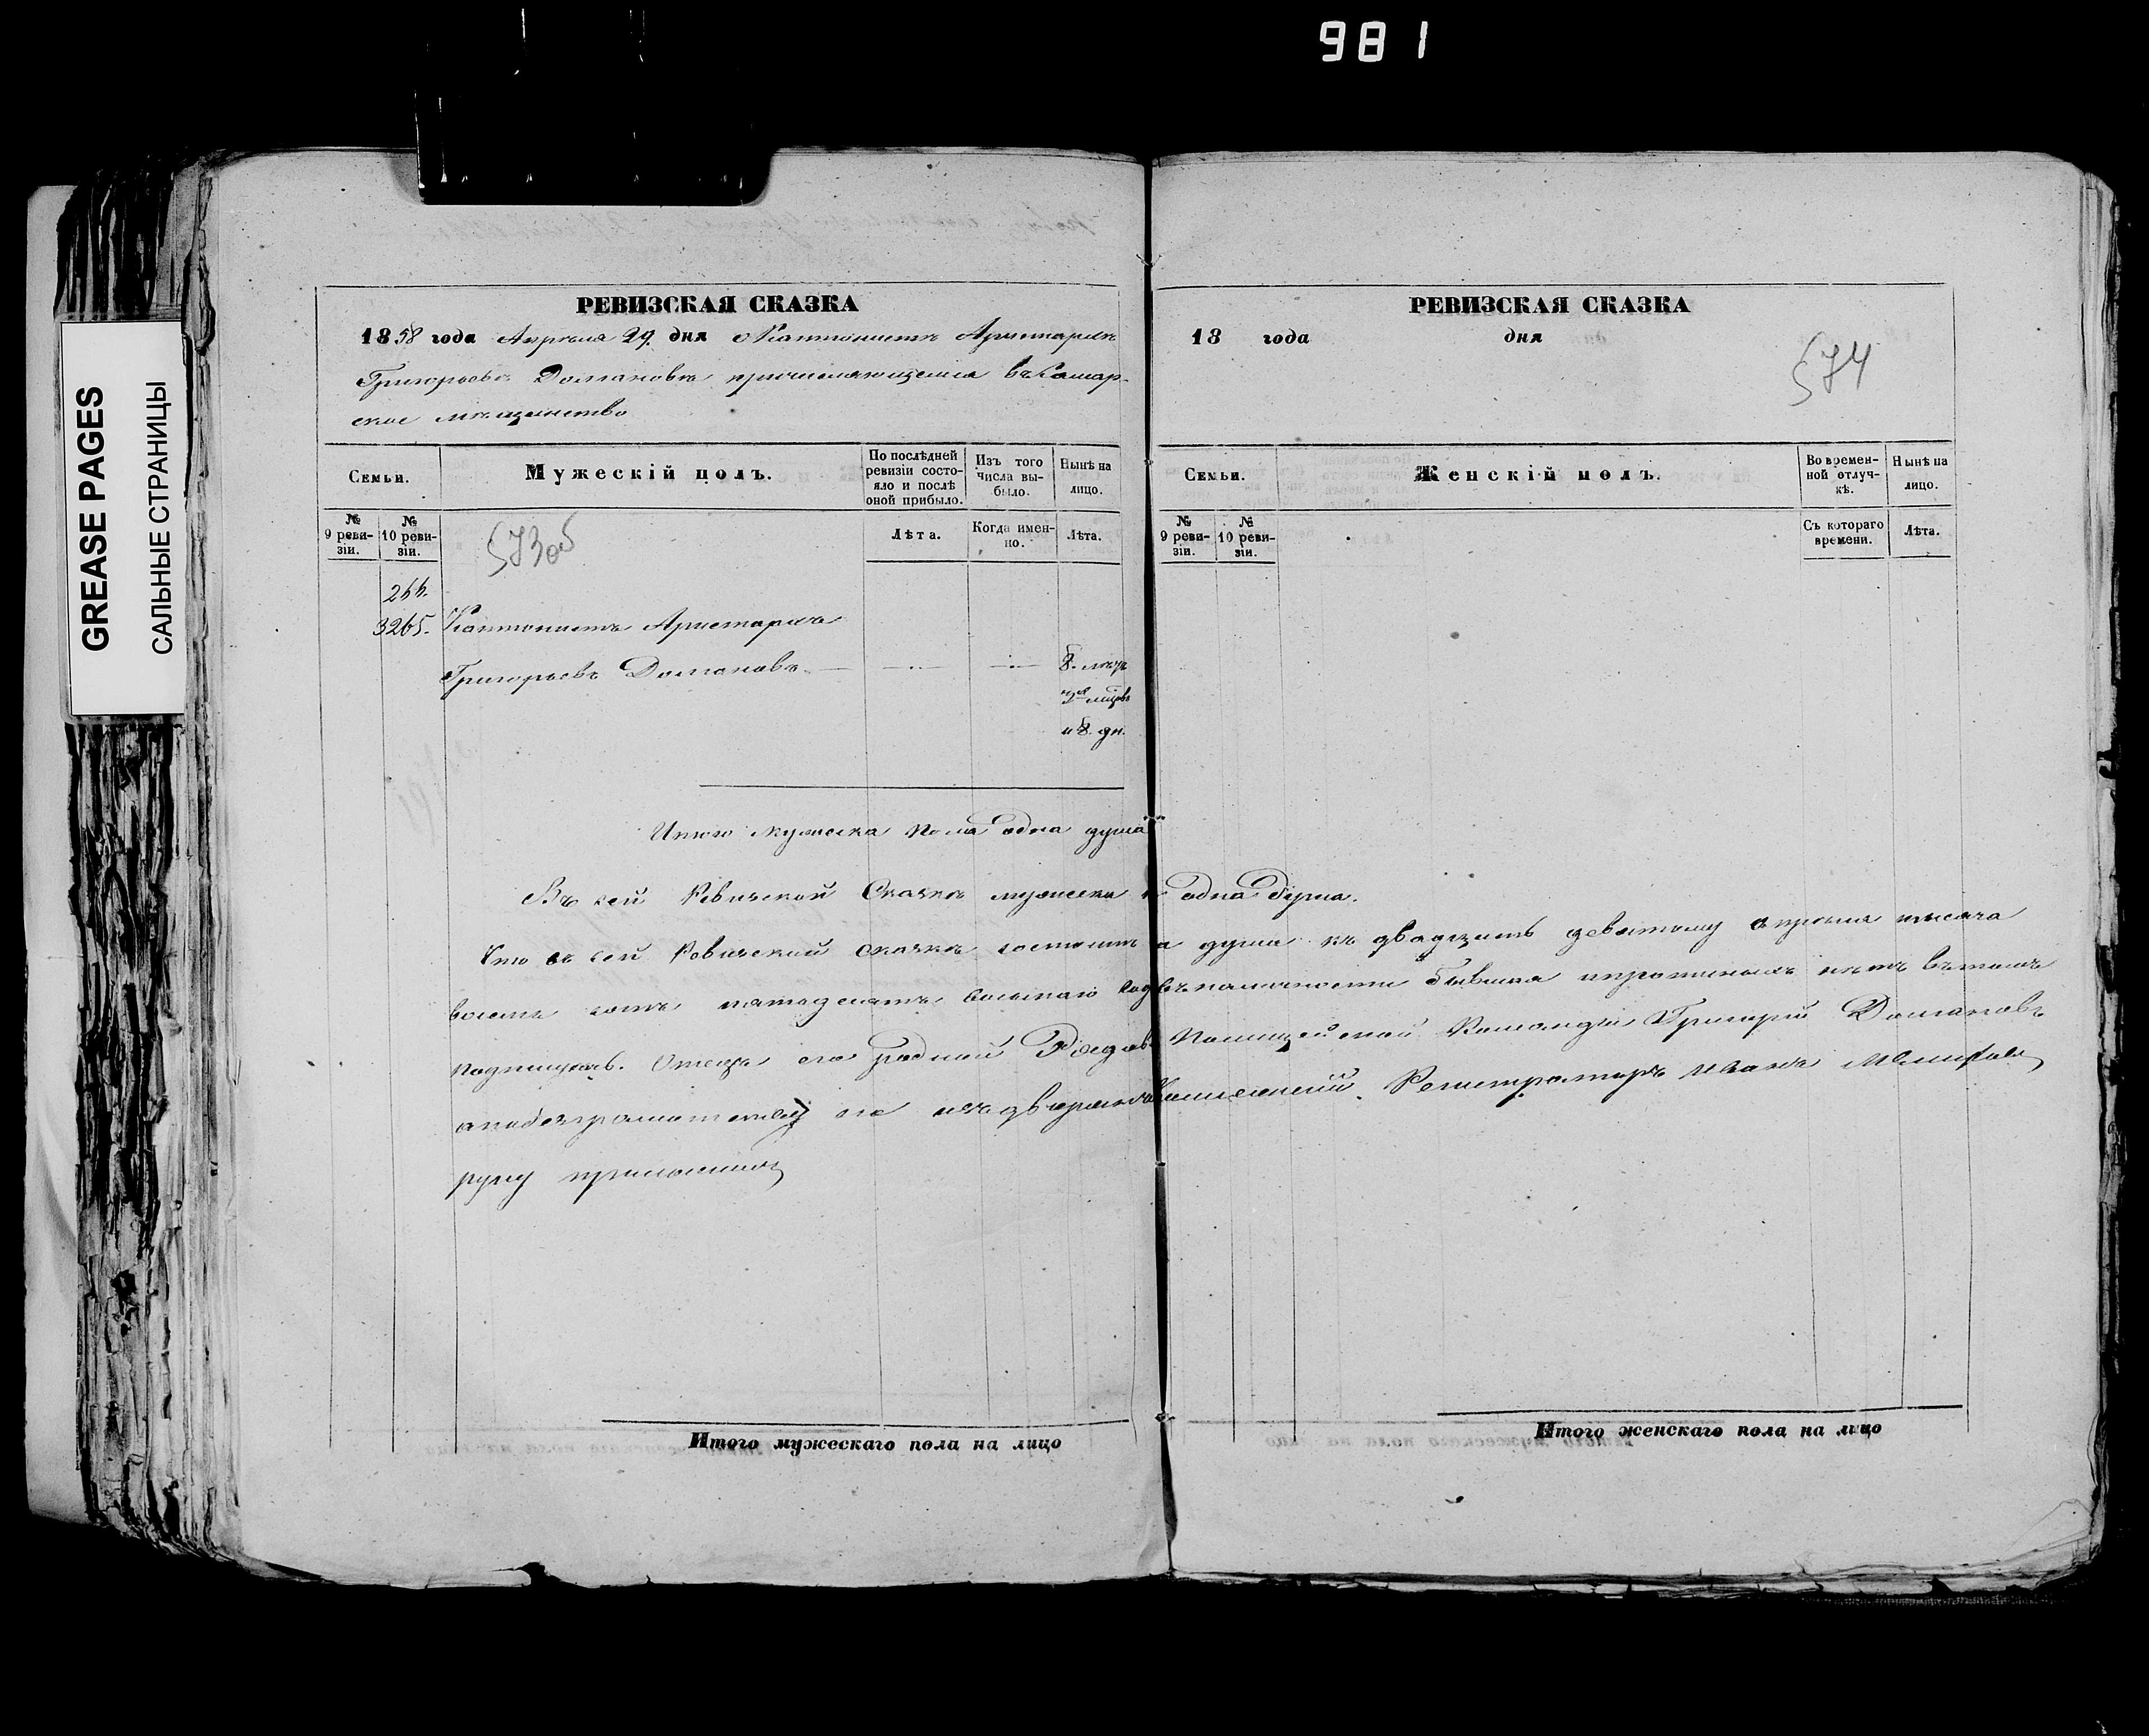 981
GREASE PAGES
САЛЬНЫЕ СТРАНИЦЫ
РЕВИЗСКАЯ СКАЗКА
1858 года Апрѣля 29. дня Кантонистъ Аристархъ
Григорьевъ Домановъ причисляющемся въ Самар-
ское мѣщанство
Семьи.
Мужескій полъ.
По послѣдней ревизіи состояло и послѣ оной прибыло.
Изъ того числа выбыло.
Нынѣ на лицо.
№ 9 ревизіи.
№ 10 ревизіи.
573об
Лѣта.
Когда именно.
Лѣта.
3265. Кантонистъ Аристархъ
Григорьевъ Домановъ 8. лѣтъ
2 мѣцовъ
и 8. дн.
Итого мужеска пола одна душа
Въ сей Ревизской Сказкѣ мужеска одна душа.
Что въ сей Ревизской сказкѣ состоитъ а душа къ двадцать девятому апрѣля тысяча
восемь сотъ пятьдесятъ восьмаго въ наличности бывшая и прописныхъ нѣтъ въ томъ
подпишусь. Отецъ его родной Рядов Полицейской Команды Григорій Домановъ
а по безграмотству его изъ дворянъ Регистраторъ Иванъ
руку приложилъ
Итого мужескаго пола на лицо
РЕВИЗСКАЯ СКАЗКА
18 года дня
574
Семьи.
Женскій полъ.
Во временной отлучкѣ.
Нынѣ на лицо.
№ 9 ревизіи.
№ 10 ревизіи.
Съ котораго времени.
Лѣта.
Итого женскаго пола на лицо